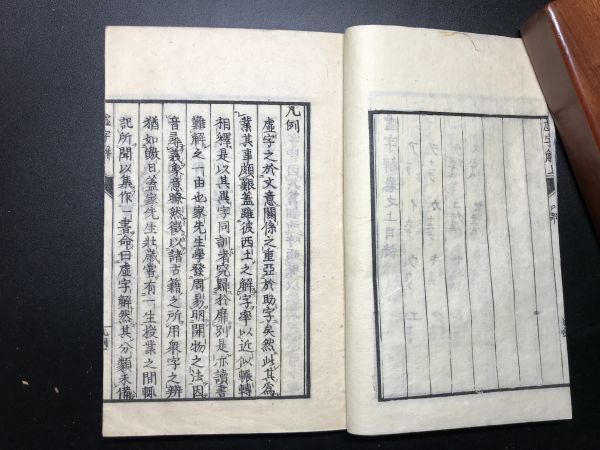 虛字解上
凡例
虛字之於文意關係之重亞於助字矣然此其爲
業其事頗艱蓋雖彼西土之解字率以近似輾轉
相釋是以其異字同訓者究歸於靡別是亦讀書
難解之一由也家先生學發周易明開物之法因
音尋義象意瞭然徵以諸古籍之所用衆字之辨
猶如皦日蓋家先生壯歲嘗有一生授業之間輒
記所聞以集作一書命曰虛字解然其分類未備
虛字解
凡例